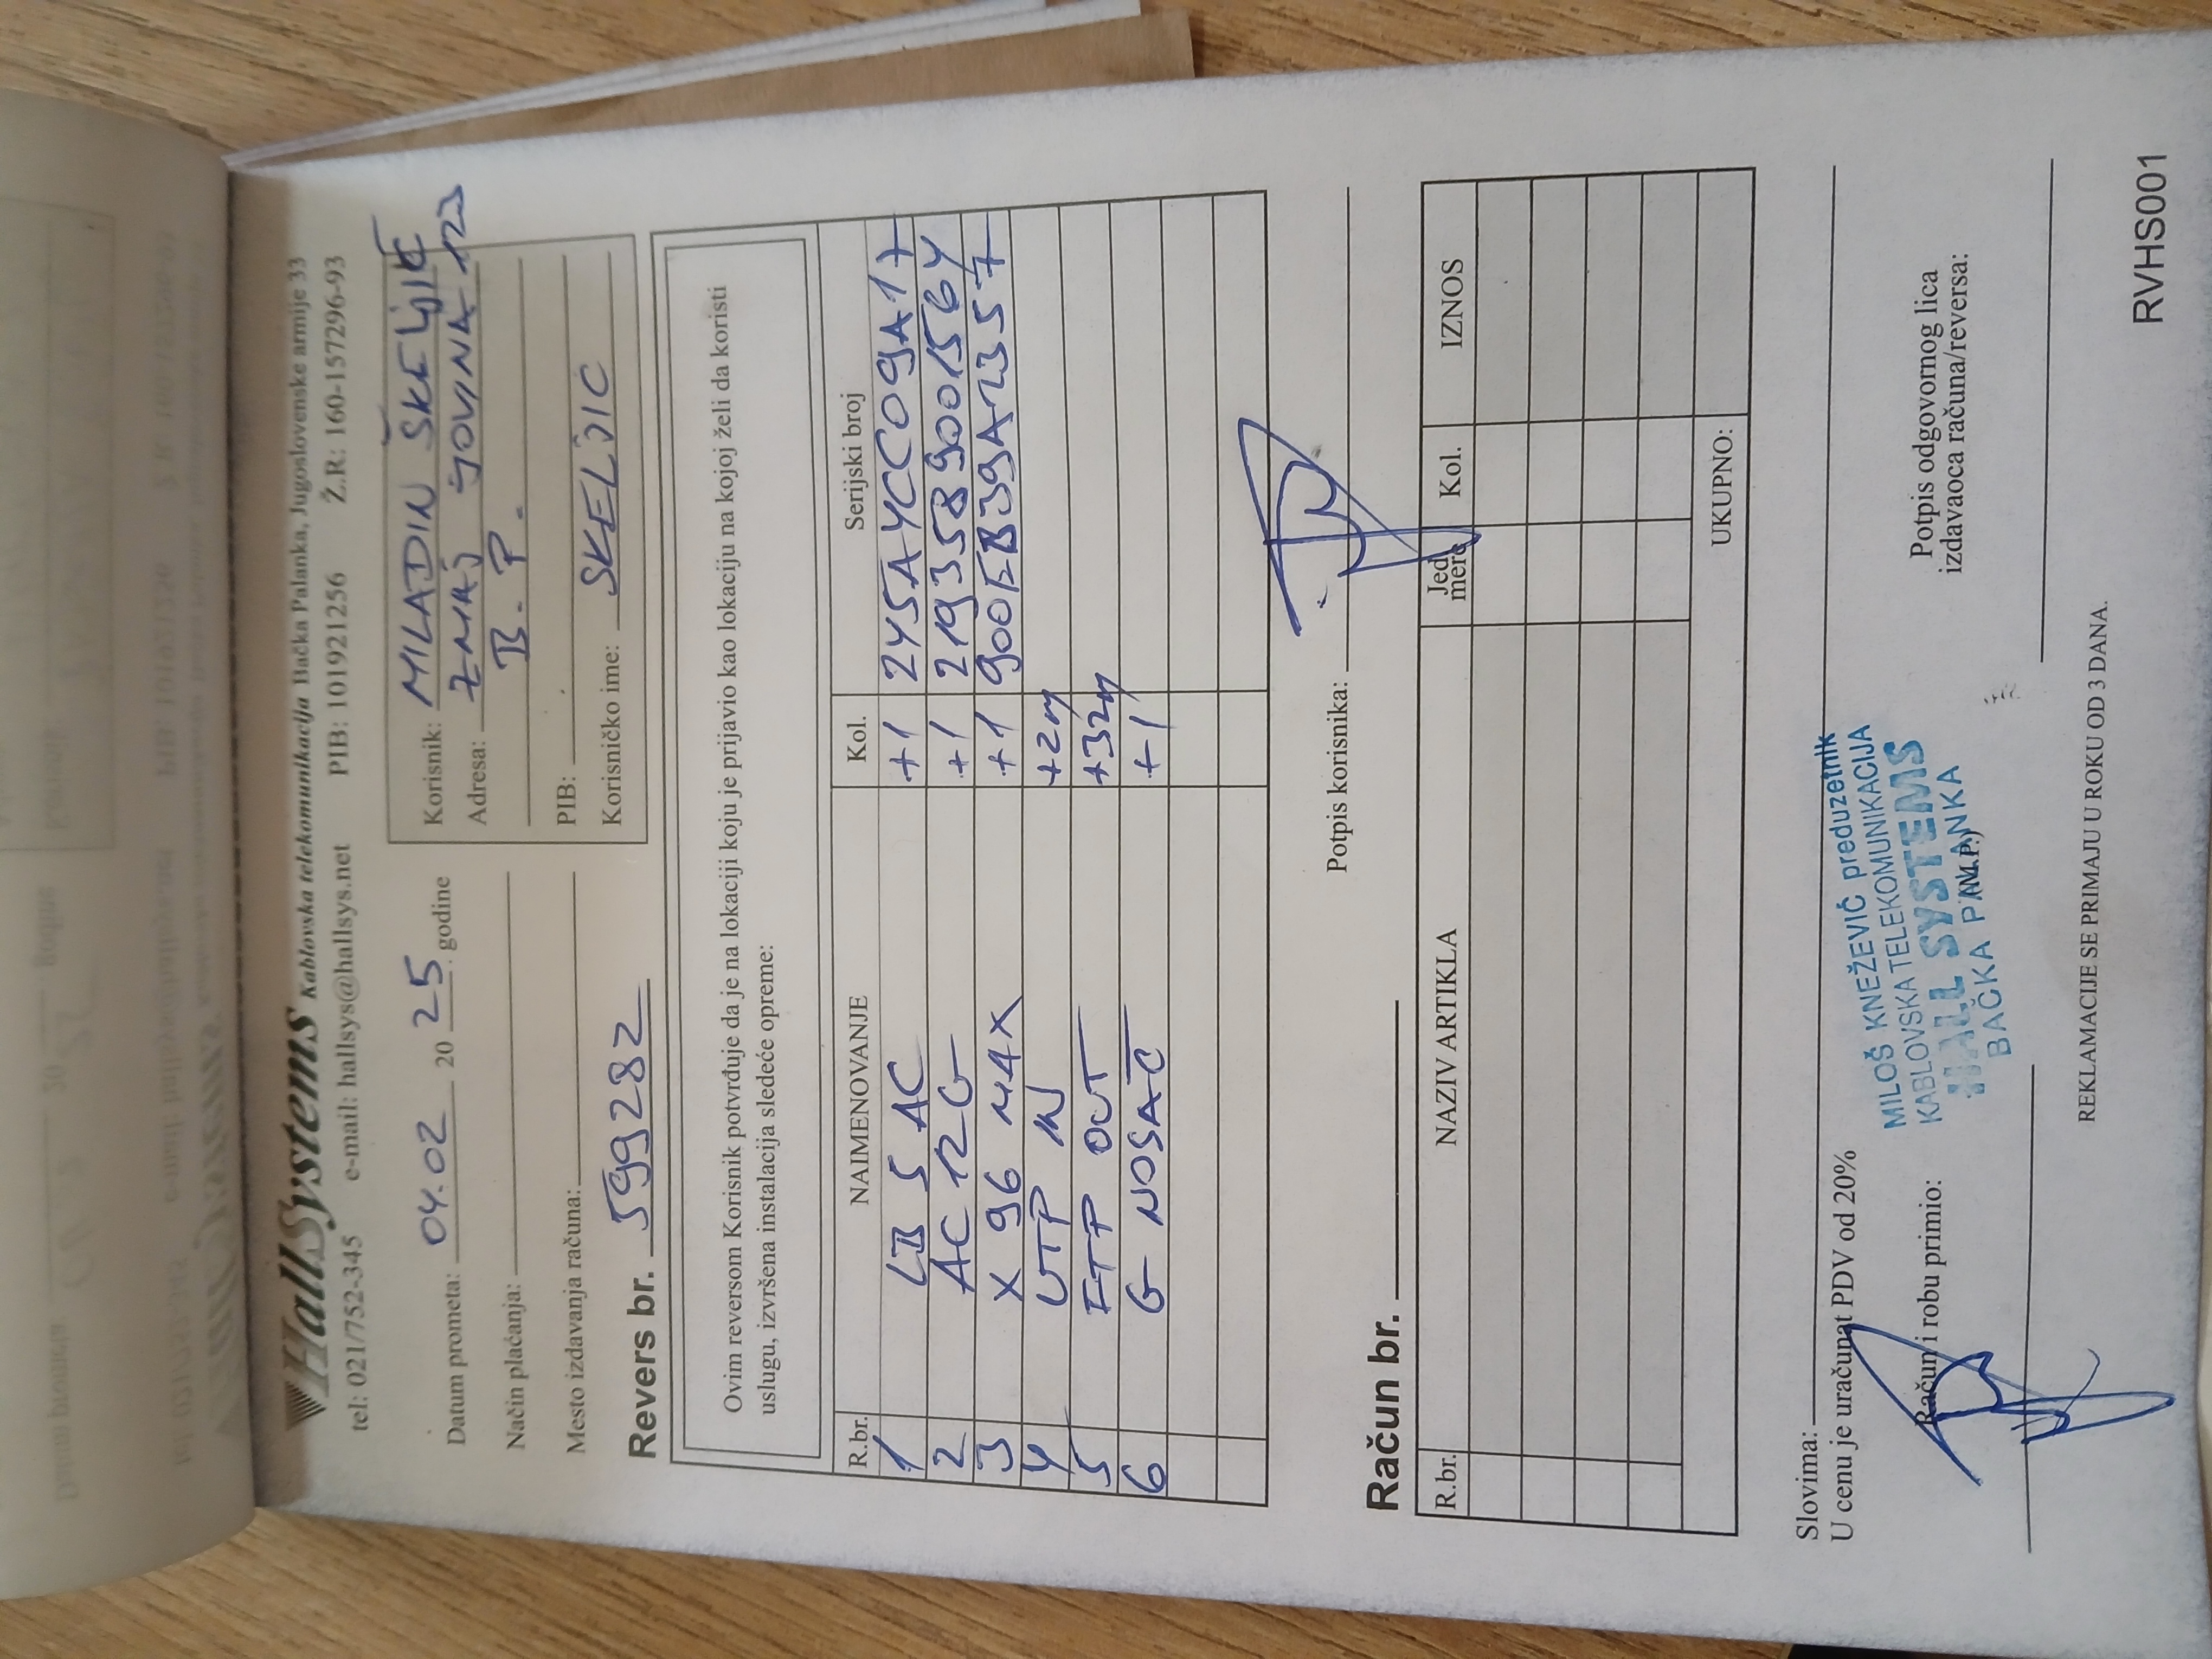 HallSystems Kablovska telekomunikacija Bačka Palanka, Jugoslovenske armije 33
tel: 021/752-345 e-mail: hallsys@hallsys.net PIB: 101921256 Ž.R: 160-157296-93
Datum prometa: 04.02 20 25. godine
Način plaćanja:
Mesto izdavanja računa:
Korisnik: MILADIN ŠKELJIĆ
Adresa: ZMAJ JOVINA 123
B. P.
PIB:
Korisničko ime: SKELJIC
Revers br. 599282
Ovim reversom Korisnik potvrđuje da je na lokaciji koju je prijavio kao lokaciju na kojoj želi da koristi
uslugu, izvršena instalacija sledeće opreme:
R.br. NAIMENOVANJE Kol. Serijski broj
1 LB 5 AC +1 245A4CC09A17
2 AC 12G +1 2193589001564
3 X 96 MAX +1 900EB39A2357
4 UTP IN +2m
5 FTP OUT +32m
6 G NOSAČ +1
Potpis korisnika:
Račun br.
R.br. NAZIV ARTIKLA Jed. mere Kol. IZNOS
UKUPNO:
Slovima:
U cenu je uračunat PDV od 20%
Račun i robu primio:
MILOŠ KNEŽEVIĆ preduzetnik
KABLOVSKA TELEKOMUNIKACIJA
HALL SYSTEMS
BAČKA PALANKA
(M.P.)
Potpis odgovornog lica
izdavaoca računa/reversa:
REKLAMACIJE SE PRIMAJU U ROKU OD 3 DANA.
RVHS001